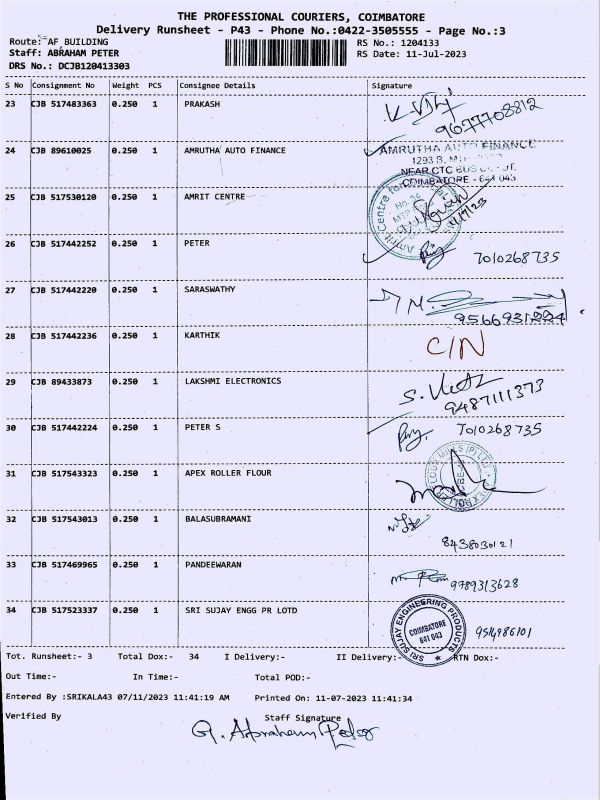 THE PROFESSIONAL COURIERS, COIMBATORE
Delivery Runsheet - P43 - Phone No.:0422-3505555 - Page No.:3
Route: AF BUILDING RS No.: 1204133
Staff: ABRAHAM PETER RS Date: 11-Jul-2023
DRS No.: DCJB120413303
S No Consignment No Weight PCS Consignee Details Signature
23 CJB 517483363 0.250 1 PRAKASH
9677708812
24 CJB 89610025 0.250 1 AMRUTHA AUTO FINANCE AMRUTHA AUTO FINANCE
1293 B.
NEAR CTC BUS
COIMBATORE - 641 043
25 CJB 517530120 0.250 1 AMRIT CENTRE Amrit Centre for
26 CJB 517442252 0.250 1 PETER 7010268735
27 CJB 517442220 0.250 1 SARASWATHY
9566931224
28 CJB 517442236 0.250 1 KARTHIK C/N
29 CJB 89433873 0.250 1 LAKSHMI ELECTRONICS
9487111373
30 CJB 517442224 0.250 1 PETER S 7010268735
31 CJB 517543323 0.250 1 APEX ROLLER FLOUR
32 CJB 517543013 0.250 1 BALASUBRAMANI
8438030121
33 CJB 517469965 0.250 1 PANDEEWARAN 9789313628
34 CJB 517523337 0.250 1 SRI SUJAY ENGG PR LOTD SRI SUJAY ENGINEERING PRODUCTS COIMBATORE 641 043 9514986101
Tot. Runsheet:- 3 Total Dox:- 34 I Delivery:- II Delivery:- RTN Dox:-
Out Time:- In Time:- Total POD:-
Entered By :SRIKALA43 07/11/2023 11:41:19 AM Printed On: 11-07-2023 11:41:34
Verified By Staff Signature
G. Abraham Peter